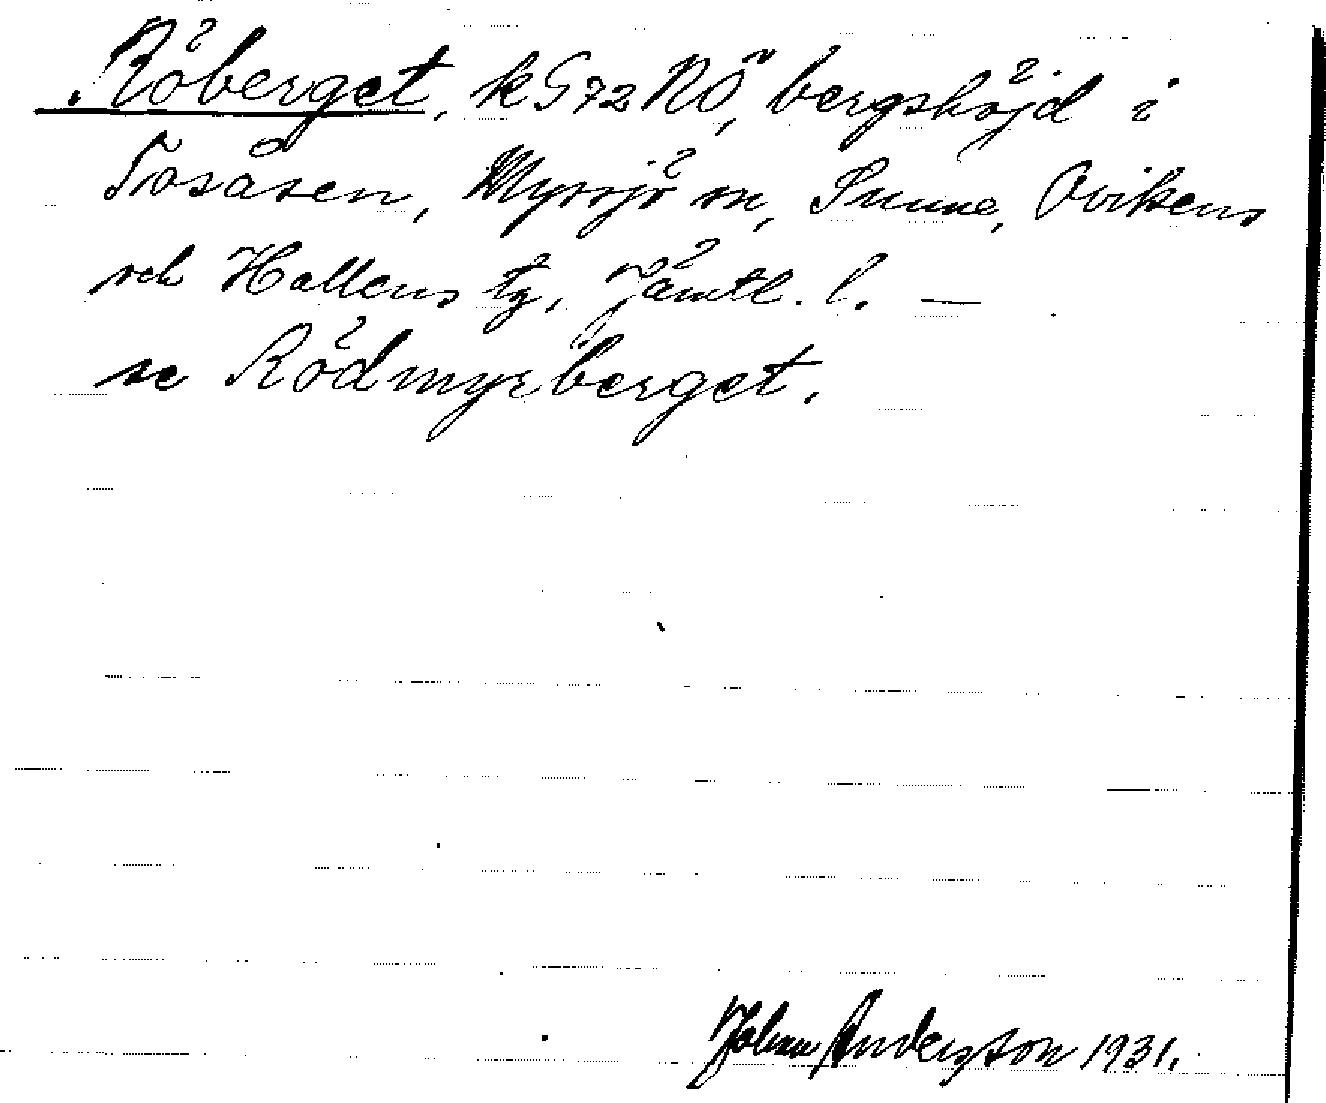 Röberget, kG72NÖ, bergshöjd i
Tosåsen, Myssjö sn, Sunne, Ovikens
och Hallens tg, Jämtl. l. —
se Rödmyrberget.
Johan Anderzson 1931.